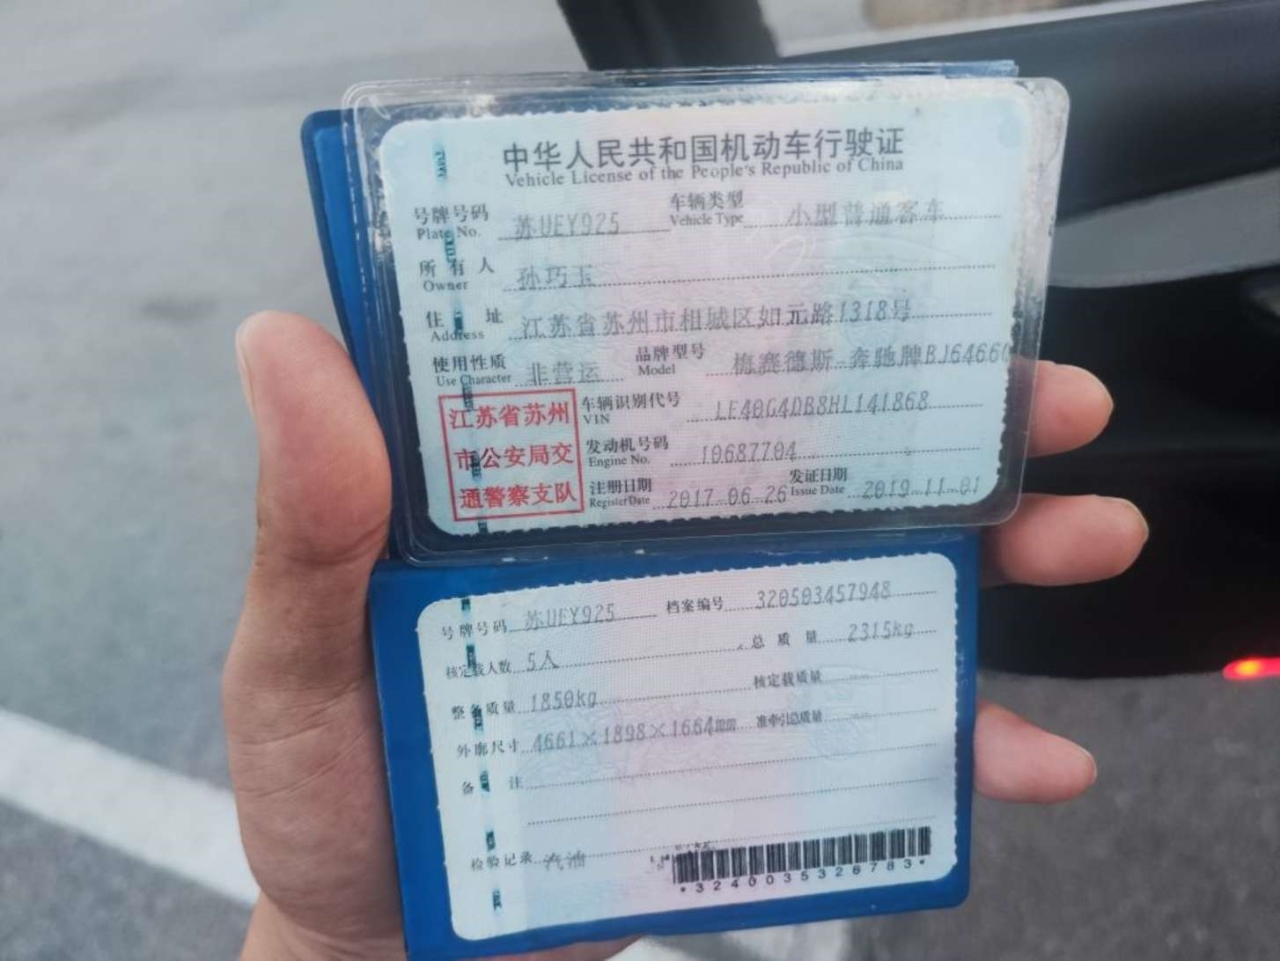 中华人民共和国机动车行驶证
Vehicle License of the People's Republic of China
号牌号码 苏UEY925 车辆类型 小型普通客车
Plate No. Vehicle Type
所有人 孙巧玉
Owner
住址 江苏省苏州市相城区如元路1318号
Address
使用性质 非营运 品牌型号 梅赛德斯-奔驰牌BJ6466G
Use Character Model
江苏省苏州
市公安局交
通警察支队
车辆识别代号 LE40G4DB8HL141868
VIN
发动机号码 10687704
Engine No.
注册日期 2017-06-26 发证日期 2019-11-01
Register Date Issue Date
号牌号码 苏UEY925 档案编号 320503457948
核定载人数 5人 总质量 2315kg
整备质量 1850kg 核定载质量 --
外廓尺寸 4661×1898×1664mm 准牵引总质量 --
备注
检验记录 汽油
*3240035326783*